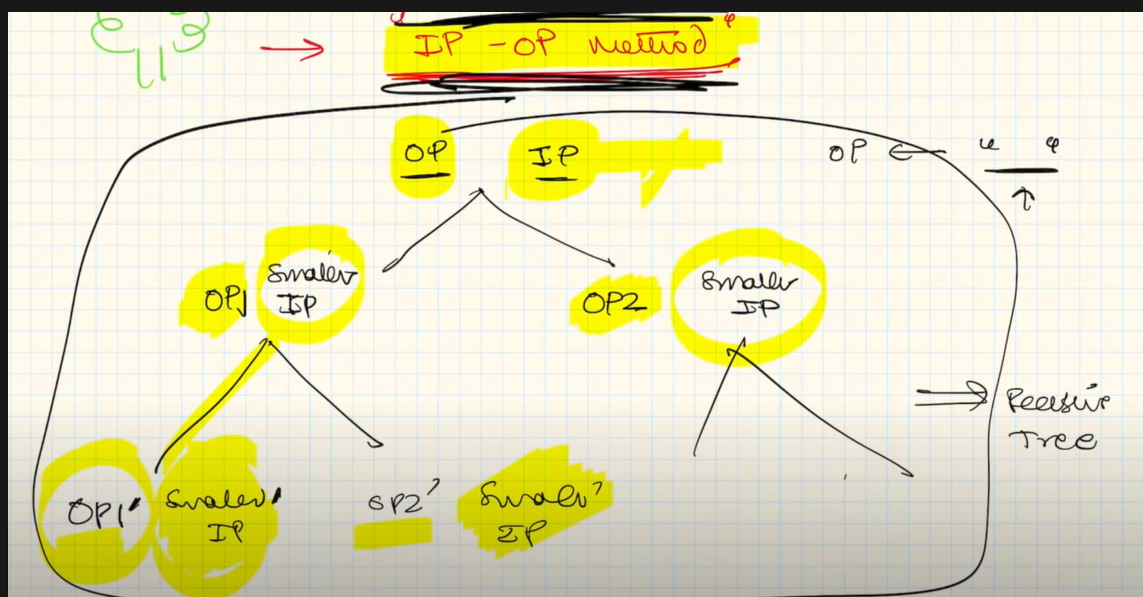 IP - OP Method
OP IP
OP ← " "
OP1 Smaller IP
OP2 Smaller IP
Recursive
Tree
OP1' Smaller' IP
OP2' Smaller' IP